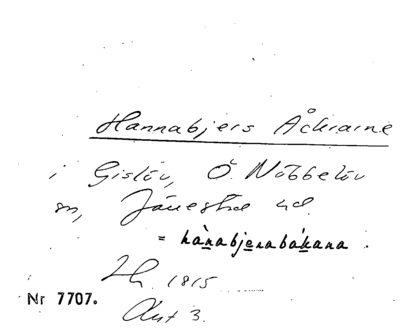 Hannabjers Åckrarne
i Gislöv, Ö. Nöbbelöv
sn, Järrestad hd.
= hànabjenabákana.
Lh. 1815
Nr 7707.
Akt 3.